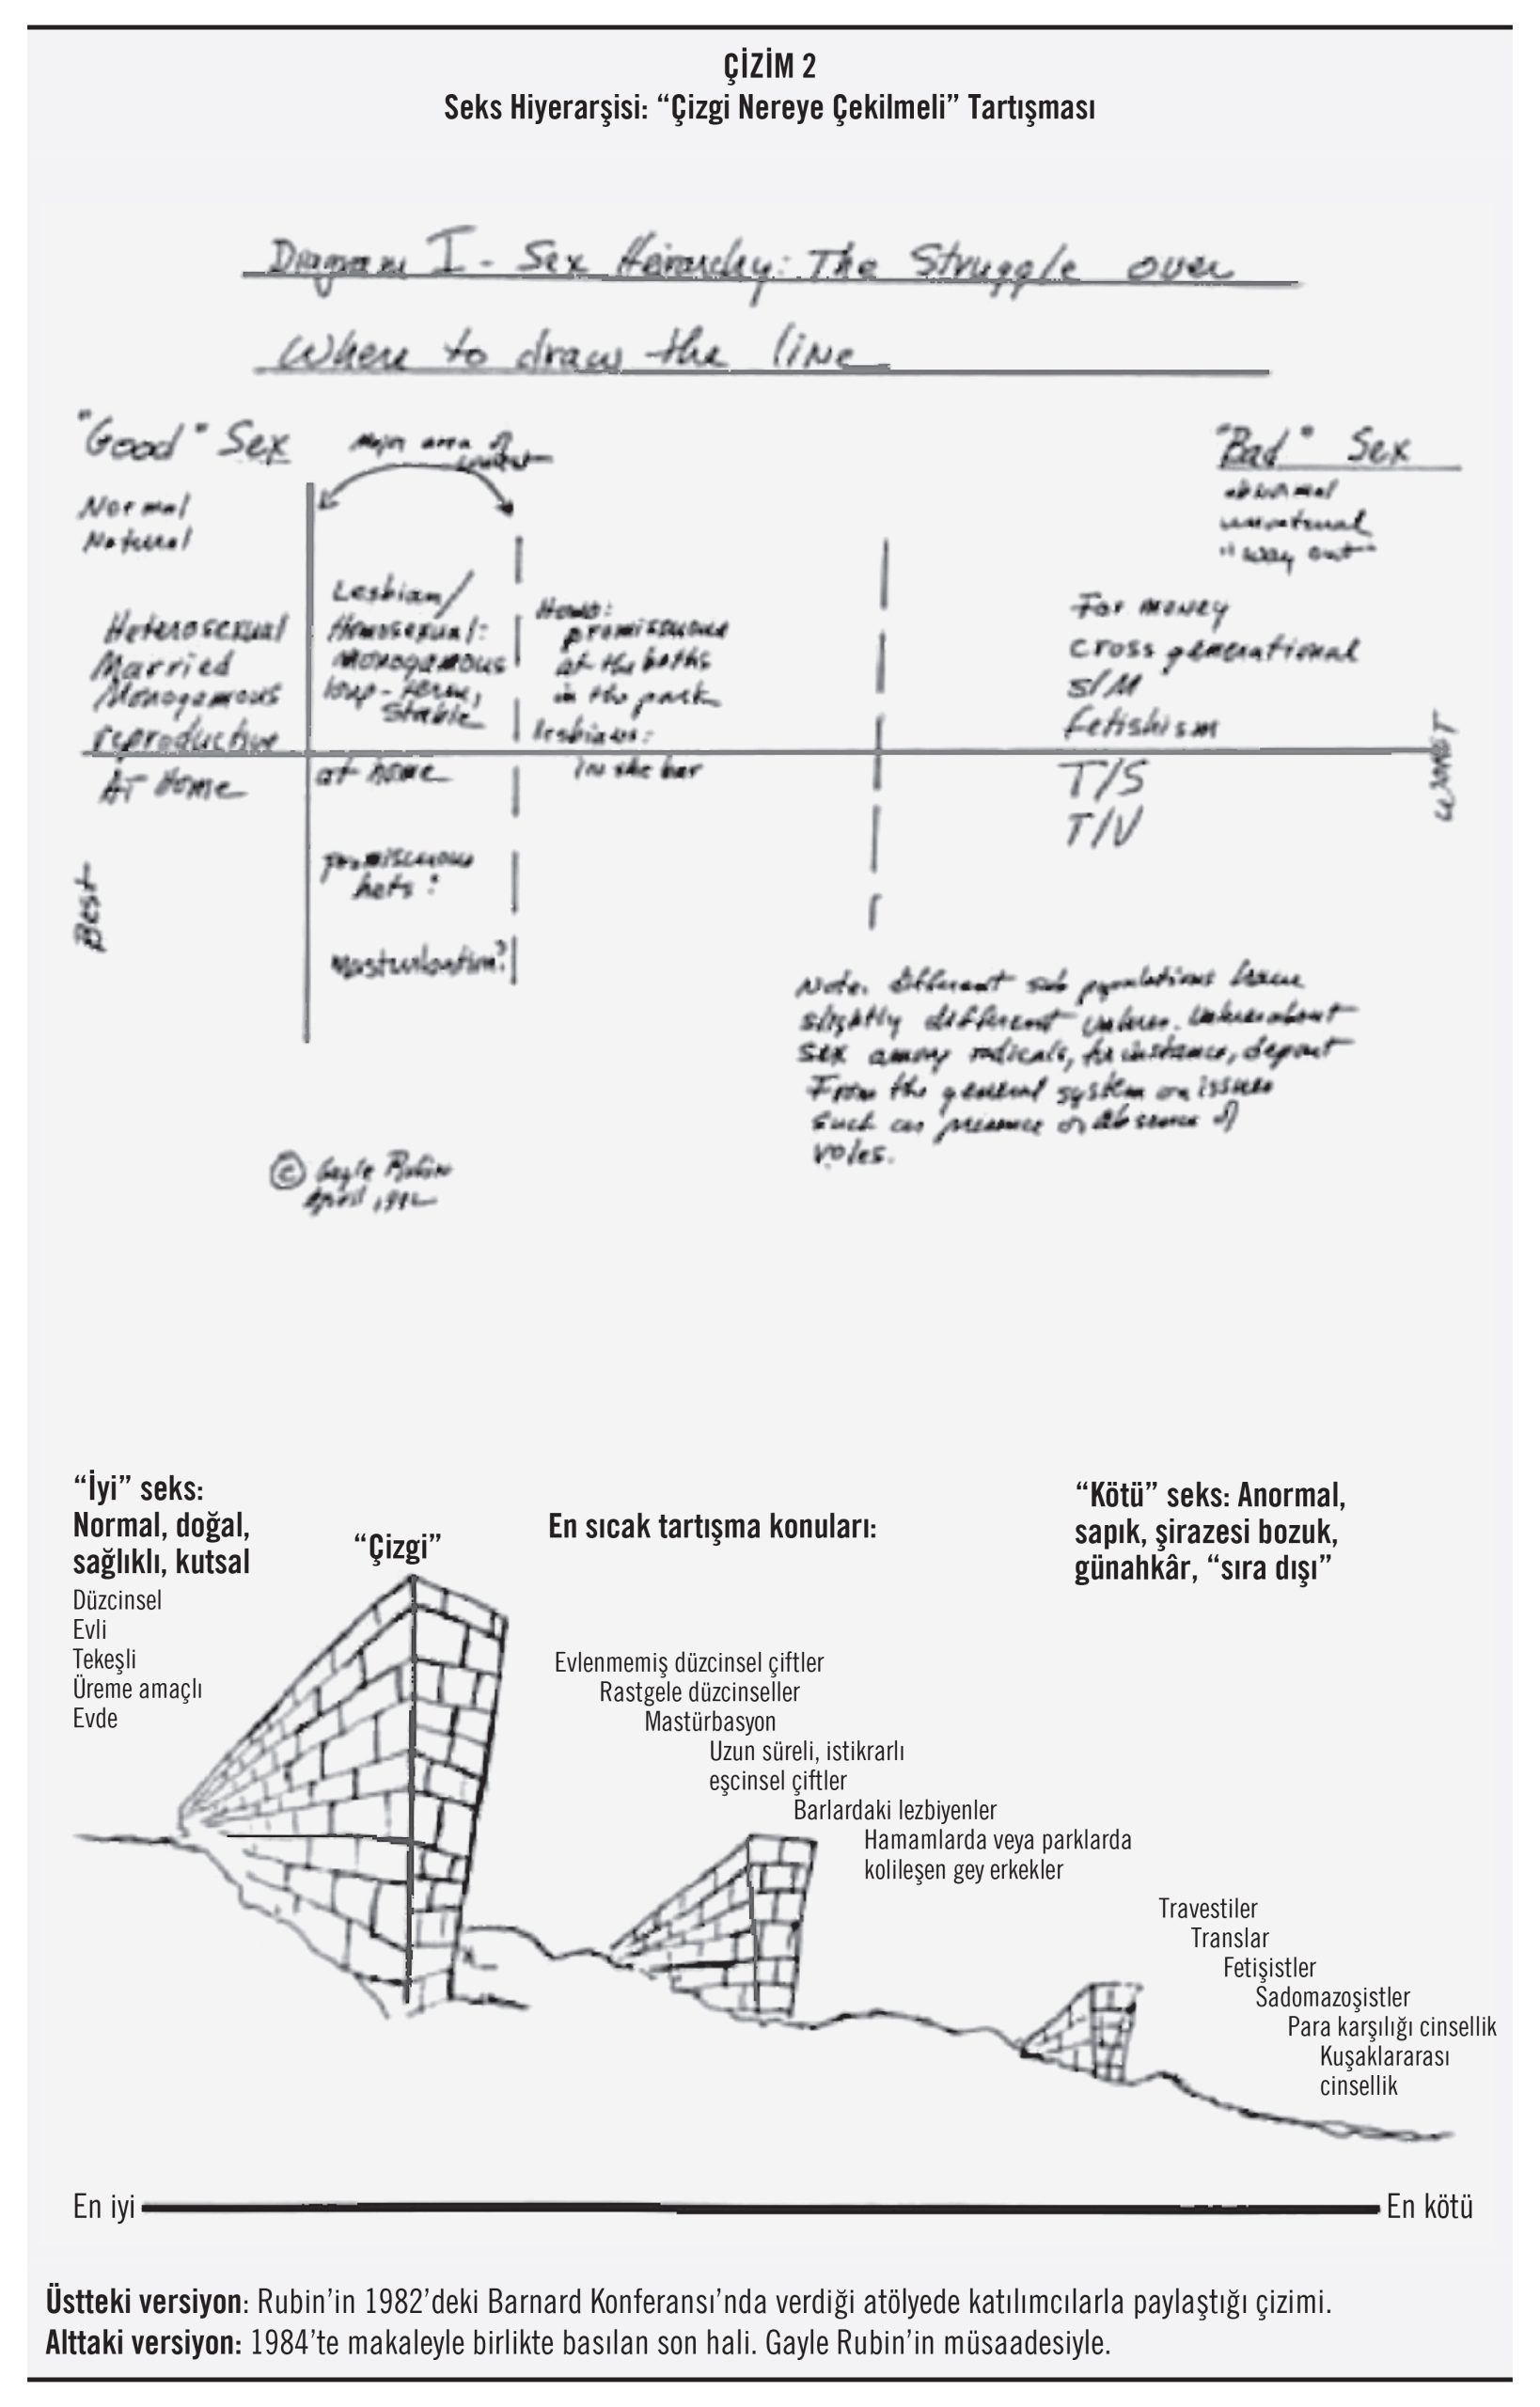 ÇİZİM 2
Seks Hiyerarşisi: “Çizgi Nereye Çekilmeli” Tartışması
Diagram I - Sex Heirarchy: The Struggle over
Where to draw the line
"Good" Sex
Normal
Natural
Heterosexual
Married
Monogamous
reproductive
At Home
Best
Major area of
Lesbian/
Homosexual:
Monogamous
long-term,
stable
at home
promiscuous
hets?
Masturbation?
Homo:
promiscuous
at the baths
in the park
lesbians:
in the bar
"Bad" Sex
abnormal
unnatural
"way out"
For money
cross generational
S/M
fetishism
T/S
T/V
WORST
Note: different sub populations have
slightly different values. Values about
sex among radicals, for instance, depart
From the general system on issues
such as presence or absence of
roles.
© Gayle Rubin
April 1982
“İyi” seks:
Normal, doğal,
sağlıklı, kutsal
Düzcinsel
Evli
Tekeşli
Üreme amaçlı
Evde
“Çizgi”
En sıcak tartışma konuları:
Evlenmemiş düzcinsel çiftler
Rastgele düzcinseller
Mastürbasyon
Uzun süreli, istikrarlı
eşcinsel çiftler
Barlardaki lezbiyenler
Hamamlarda veya parklarda
kolileşen gey erkekler
“Kötü” seks: Anormal,
sapık, şirazesi bozuk,
günahkâr, “sıra dışı”
Travestiler
Translar
Fetişistler
Sadomazoşistler
Para karşılığı cinsellik
Kuşaklararası
cinsellik
En iyi
En kötü
Üstteki versiyon: Rubin’in 1982’deki Barnard Konferansı’nda verdiği atölyede katılımcılarla paylaştığı çizimi.
Alttaki versiyon: 1984’te makaleyle birlikte basılan son hali. Gayle Rubin’in müsaadesiyle.